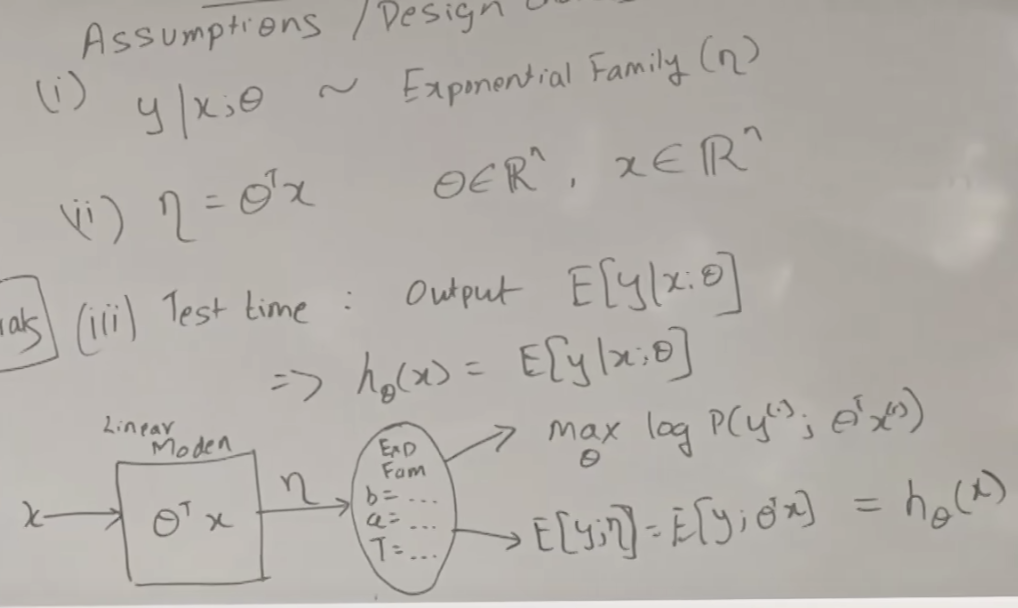 Assumptions / Design
(i) y|x;θ ~ Exponential Family (η)
(ii) η = θᵀx θ∈ℝⁿ, x∈ℝⁿ
(iii) Test time : Output E[y|x;θ]
=> h_θ(x) = E[y|x;θ]
Linear
Model
x
θᵀx
η
Exp
Fam
b= ...
a= ...
T= ...
max_θ log P(y⁽ⁱ⁾; θᵀx⁽ⁱ⁾)
E[y;η] = E[y;θᵀx] = h_θ(x)